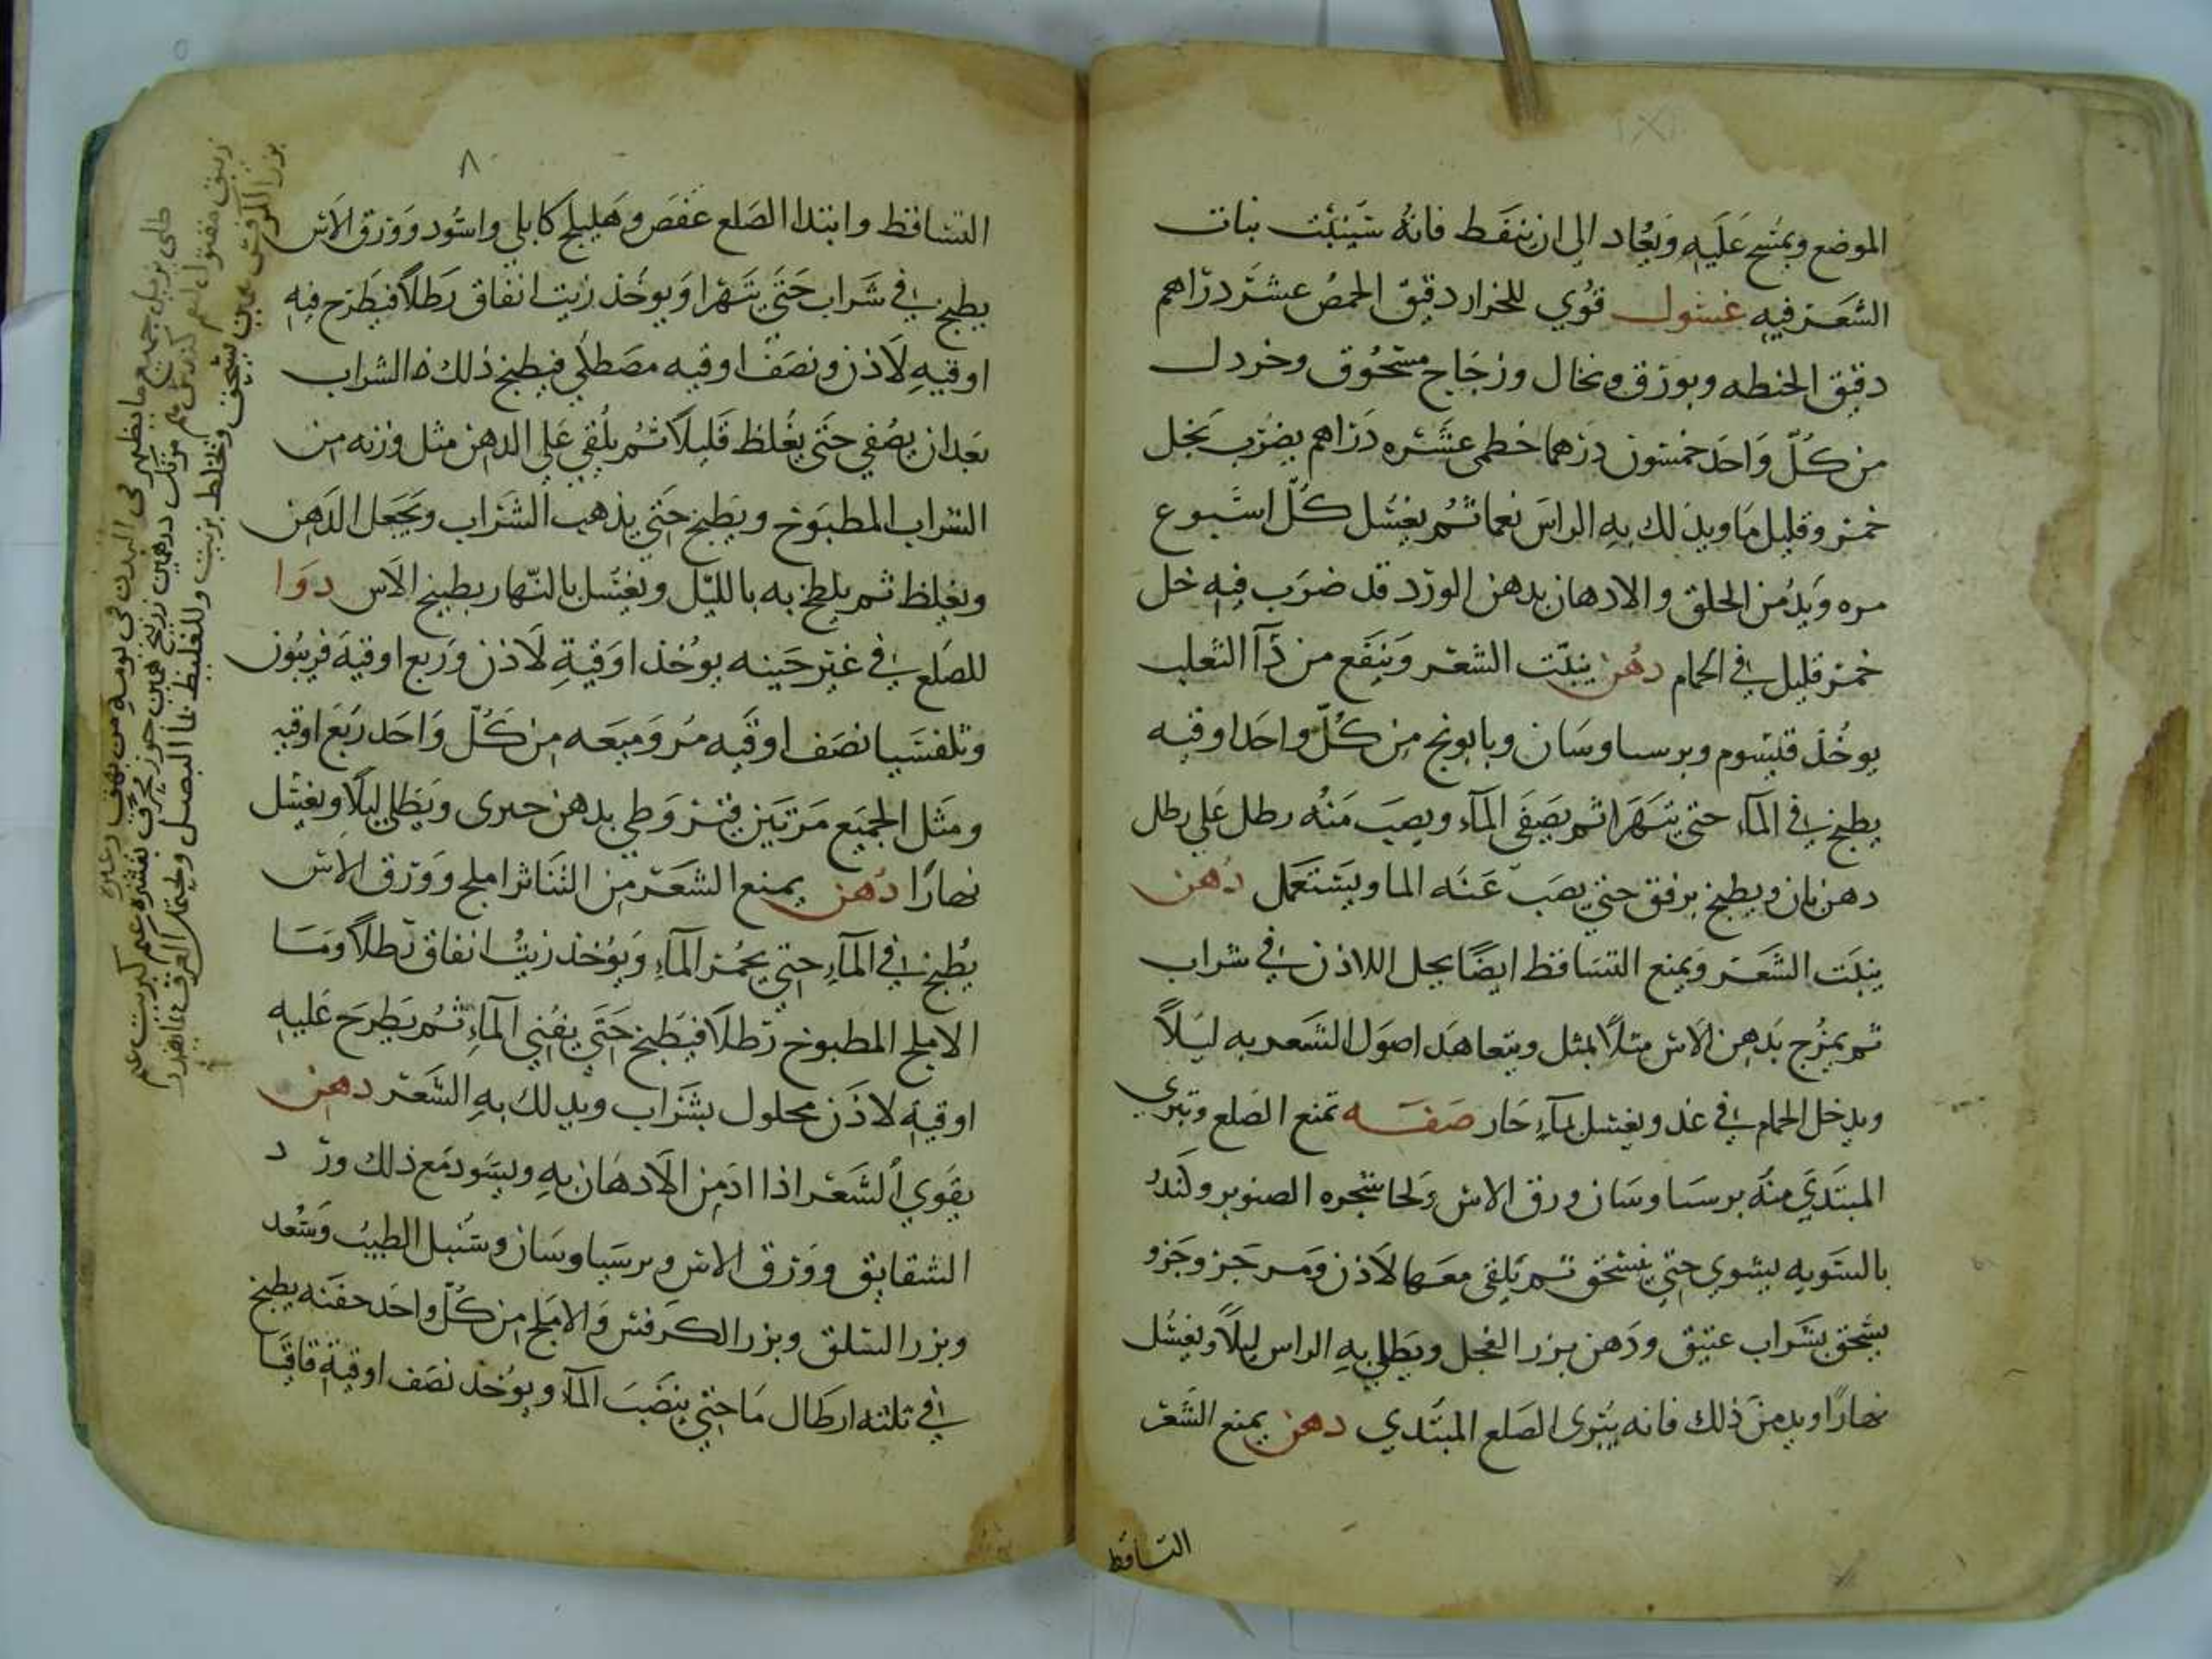 الموضع ويمسح عليه ويعاد الى ان يتنفط فانه سينبت نبات
الشعر فيه غسول قوي للحزاز دقيق الحمص عشر دراهم
دقيق الحنطه وبورق ونخال وزجاج مسحوق وخردل
من كل واحد خمسون درهما خطمى عشره دراهم يضرب بخل
خمر وقليل ما ويدلك به الراس نعما ثم يغسل كل اسبوع
مره ويدمن الحلق والادهان بدهن الورد قد ضرب فيه خل
خمر قليل في الحمام دهن ينبت الشعر وينفع من دآ الثعلب
يوخذ قيسوم وبرسياوسان وبابونج من كل واحد اوقيه
يطبخ في المآء حتى يتهرا ثم يصفى المآء ويصب منه رطل على رطل
دهن بان ويطبخ برفق حتى يصب عنه الما ويستعمل دهن
ينبت الشعر ويمنع التساقط ايضا يحل اللاذن في شراب
ثم يمزج بدهن الاس مثلا بمثل ويتعاهد اصول الشعر به ليلا
ويدخل الحمام في غد ويغسل بمآء حار صفه تمنع الصلع وتبري
المبتدي منه برسياوسان ورق الاس ولحا شجره الصنوبر وكندر
بالسويه يشوى حتى ينسحق ثم يلقى معها لاذن ومر جز وجزو
يسحق بشراب عتيق ودهن بزر الفجل ويطلى به الراس ليلا ويغسل
نهارا ويدمن ذلك فانه يبرى الصلع المبتدي دهن يمنع الشعر
التساقط
٨
التساقط وابتدا الصلع عفص وهليلج كابلي واسود وورق الاس
يطبخ في شراب حتى يتهرا ويوخذ زيت انفاق رطلا فيطرح فيه
اوقيه لاذن ونصف اوقيه مصطكى فيطبخ ذلك الشراب
بعد ان يصفى حتى يغلظ قليلا ثم يلقى على الدهن مثل وزنه من
الشراب المطبوخ ويطبخ حتى يذهب الشراب ويجعل الدهن
ويغلظ ثم يلطخ به بالليل ويغسل بالنهار بطبيخ الاس دوا
للصلع في غير حينه يوخذ اوقية لاذن وربع اوقية فربيون
وثلفسيا نصف اوقيه مر وميعه من كل واحد ربع اوقيه
ومثل الجميع مرتين قيروطي بدهن خيرى ويطلى ليلا ويغسل
نهارا دهن يمنع الشعر من التناثر املج وورق الاس
يطبخ في المآء حتى يحمر المآء ويوخذ زيت انفاق رطلا ومآ
الاملج المطبوخ رطلا فيطبخ حتى يفنى المآء ثم يطرح عليه
اوقيه لاذن محلول بشراب ويدلك به الشعر دهن
يقوي الشعر اذا ادمن الادهان به ويسود مع ذلك ورد
الشقايق وورق الاس وبرسياوسان وسنبل الطيب وسعد
وبزر السلق وبزر الكرفس والاملج من كل واحد حفنه يطبخ
في ثلثه ارطال ما حتى ينضب المآء ويوخذ نصف اوقية قاقيا
طلى يزيل جميع ما يظهر فى البدن فى يومه من بهق وغيره
زيبق مقتول كندس مرتك درهمين زرنيخ
بزر الكرفس يسحق ويخلط بزيت وللغليظ بما البصل